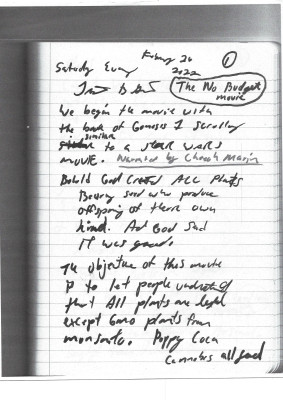 February 26
①
Saturday Evening 2022
The No Budget movie
We begin the movie with
the book of Genesis 1 scrolling
similar
to a STAR WARS
MOVIE. Narrated by Cheech Marin
Behold God Created ALL Plants
Bearing seed who produce
offspring of there own
kind. And God Said
IT was good.
The objective of this movie
is to let people understand
that All plants are legal
except GMO plants from
monsanto. Poppy Coca
Cannabis all good